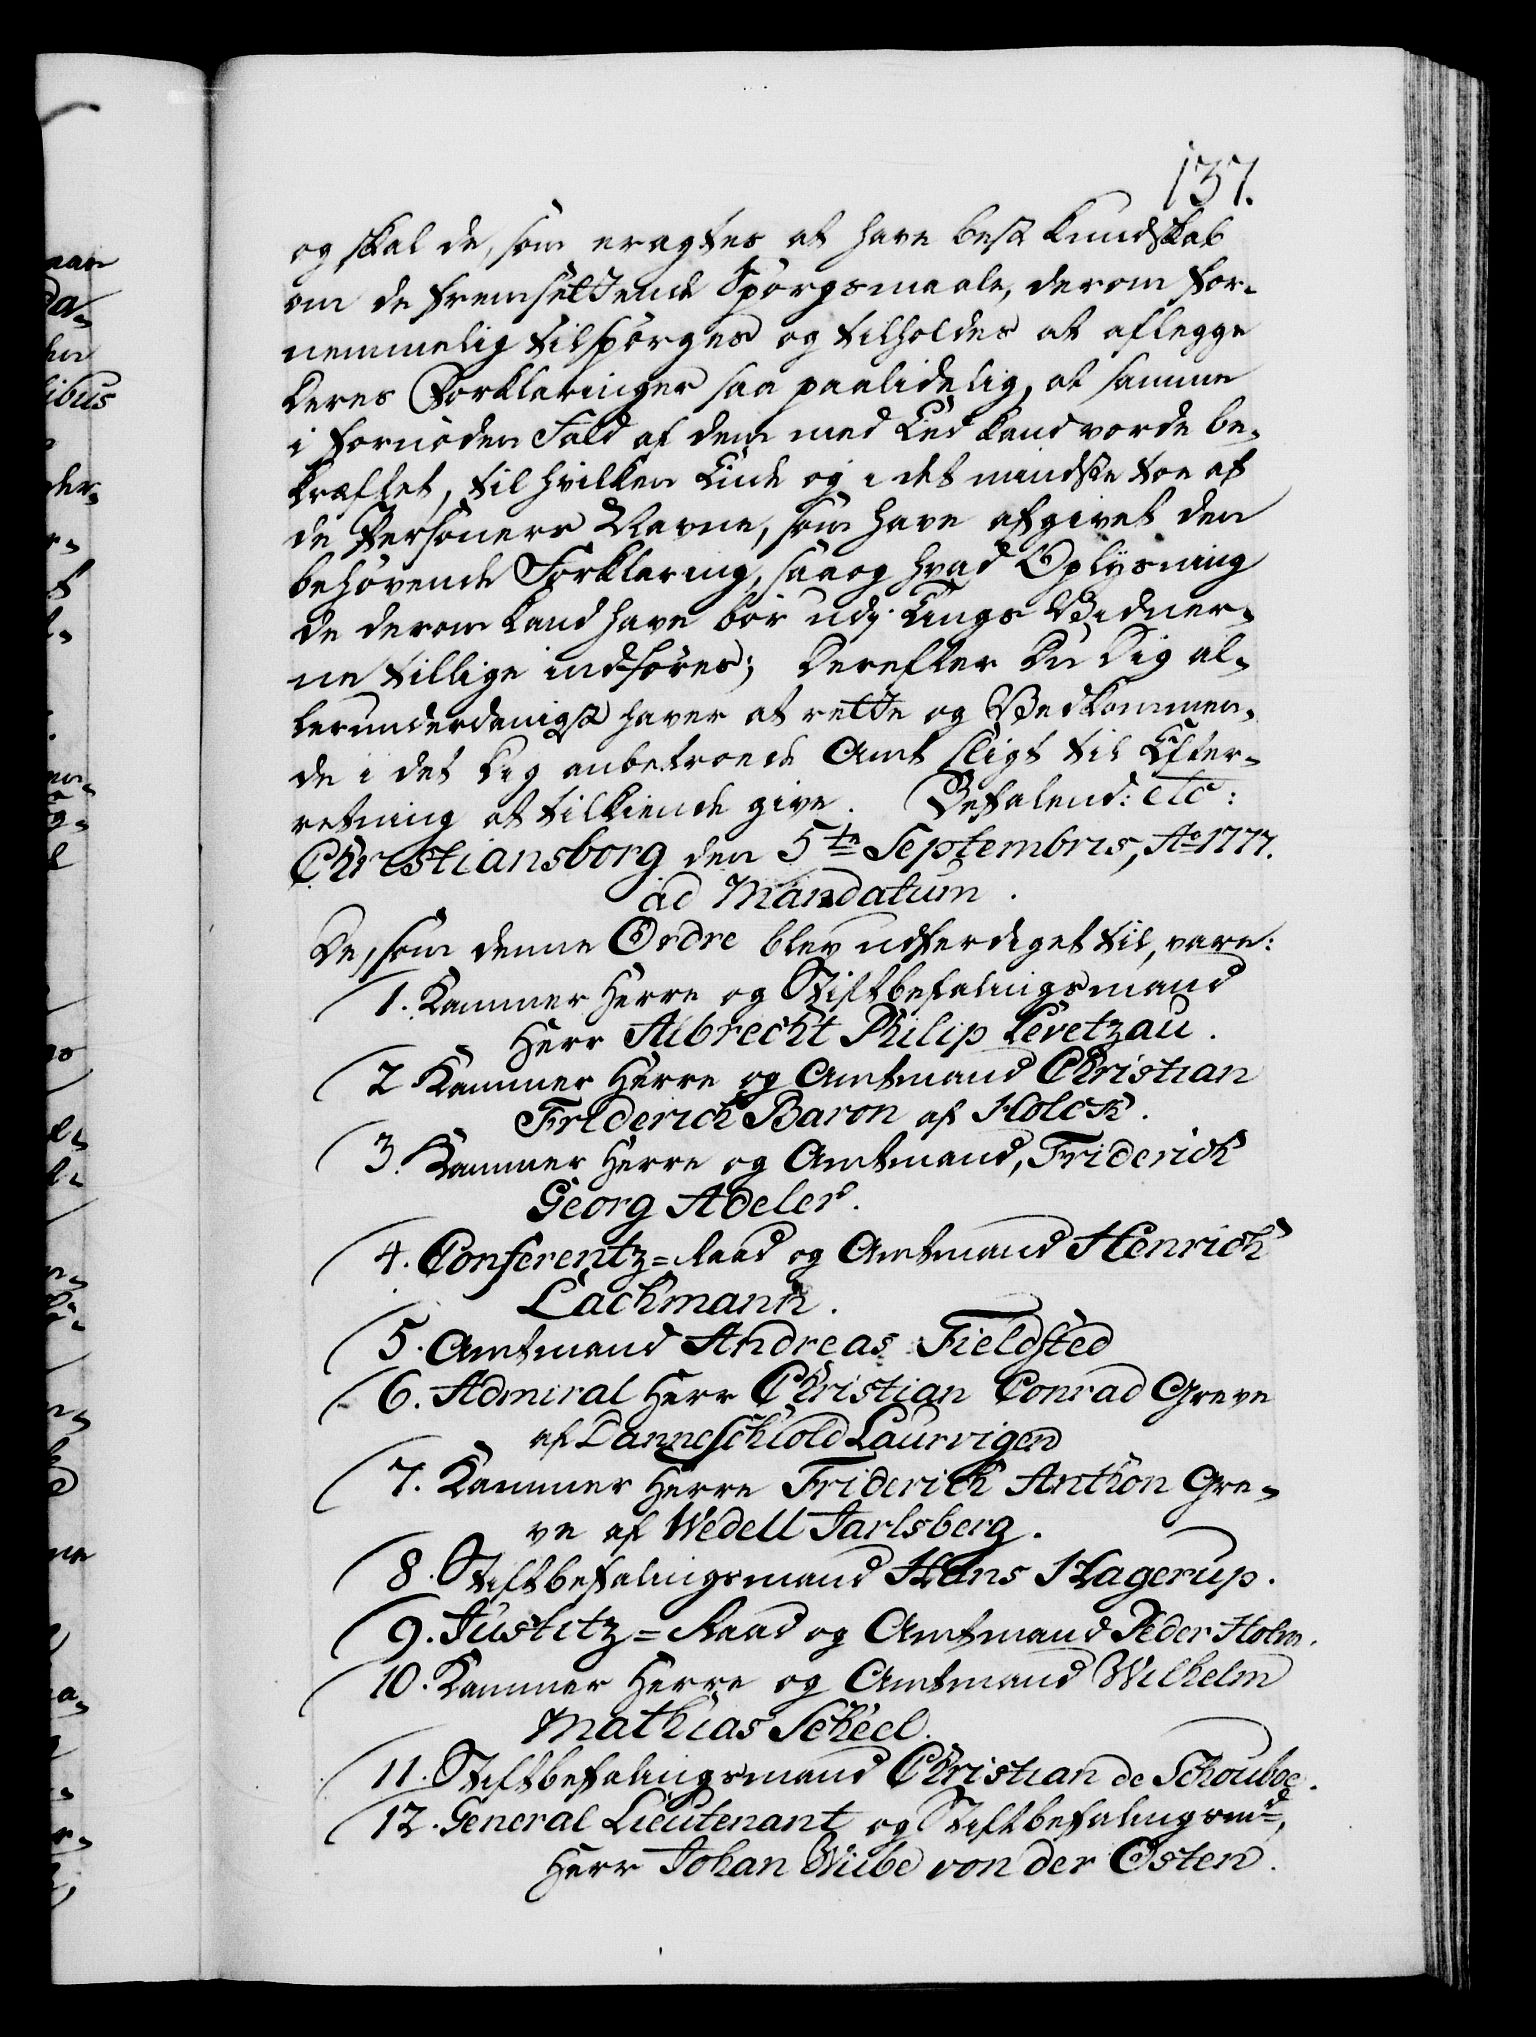 137.
og skal de, som eragtes at have best Kundskab
om de fremsettende Spörgsmaale, derom for-
nemmelig tilspörges og tilholdes at aflegge
deres Forklaringer saa paalidelig, at samme
i fornöden Fald af dem med Eed kand vorde be-
kræftet, til hvilken Ende og i det mindste toe af
de Persöners Navne, som have afgivet den
behövende Forklaring, saa og hvad Oplysning
de derom kand have bör udj Tings Vidner-
ne tillige indföres; Derefter Du Dig al-
lerunderdanigst haver at rette og Vedkommen-
de i det dig anbetroede Amt sligt til Efter-
retning at tilkiende give. Befalend: etc:
Christiansborg den 5te Septembris, Ao 1777.
ad Mandatum.
De, som denne Ordre blev udferdiget til, vare:
1. Kammer Herre og Stiftbefalingsmand
Herr Albrecht Philip Levetzau.
2 Kammer Herre og Amtmand Christian
Friderich Baron af Holck.
3. Kammer Herre og Amtmand, Friderich
Georg Adeler.
4. Conferentz=Raad og Amtmand Henrich
Lachmann.
5. Amtmand Andreas Fieldsted
6. Admiral Herr Christian Conrad Greve
af Danneschiold Laurvigen
7. Kammer Herre Friderich Anthon Gre-
ve af Wedell Jarlsberg.
8. Stiftbefalingsmand Hans Hagerup.
9. Justitz=Raad og Amtmand Peder Holm.
10. Kammer Herre og Amtmand Wilhelm
Mathias Scheel.
11. Stiftbefalingsmand Christian de Schouboe.
12. General Lieutenant og Stiftbefalingsmd,
Herr Johan Wibe von der Osten.